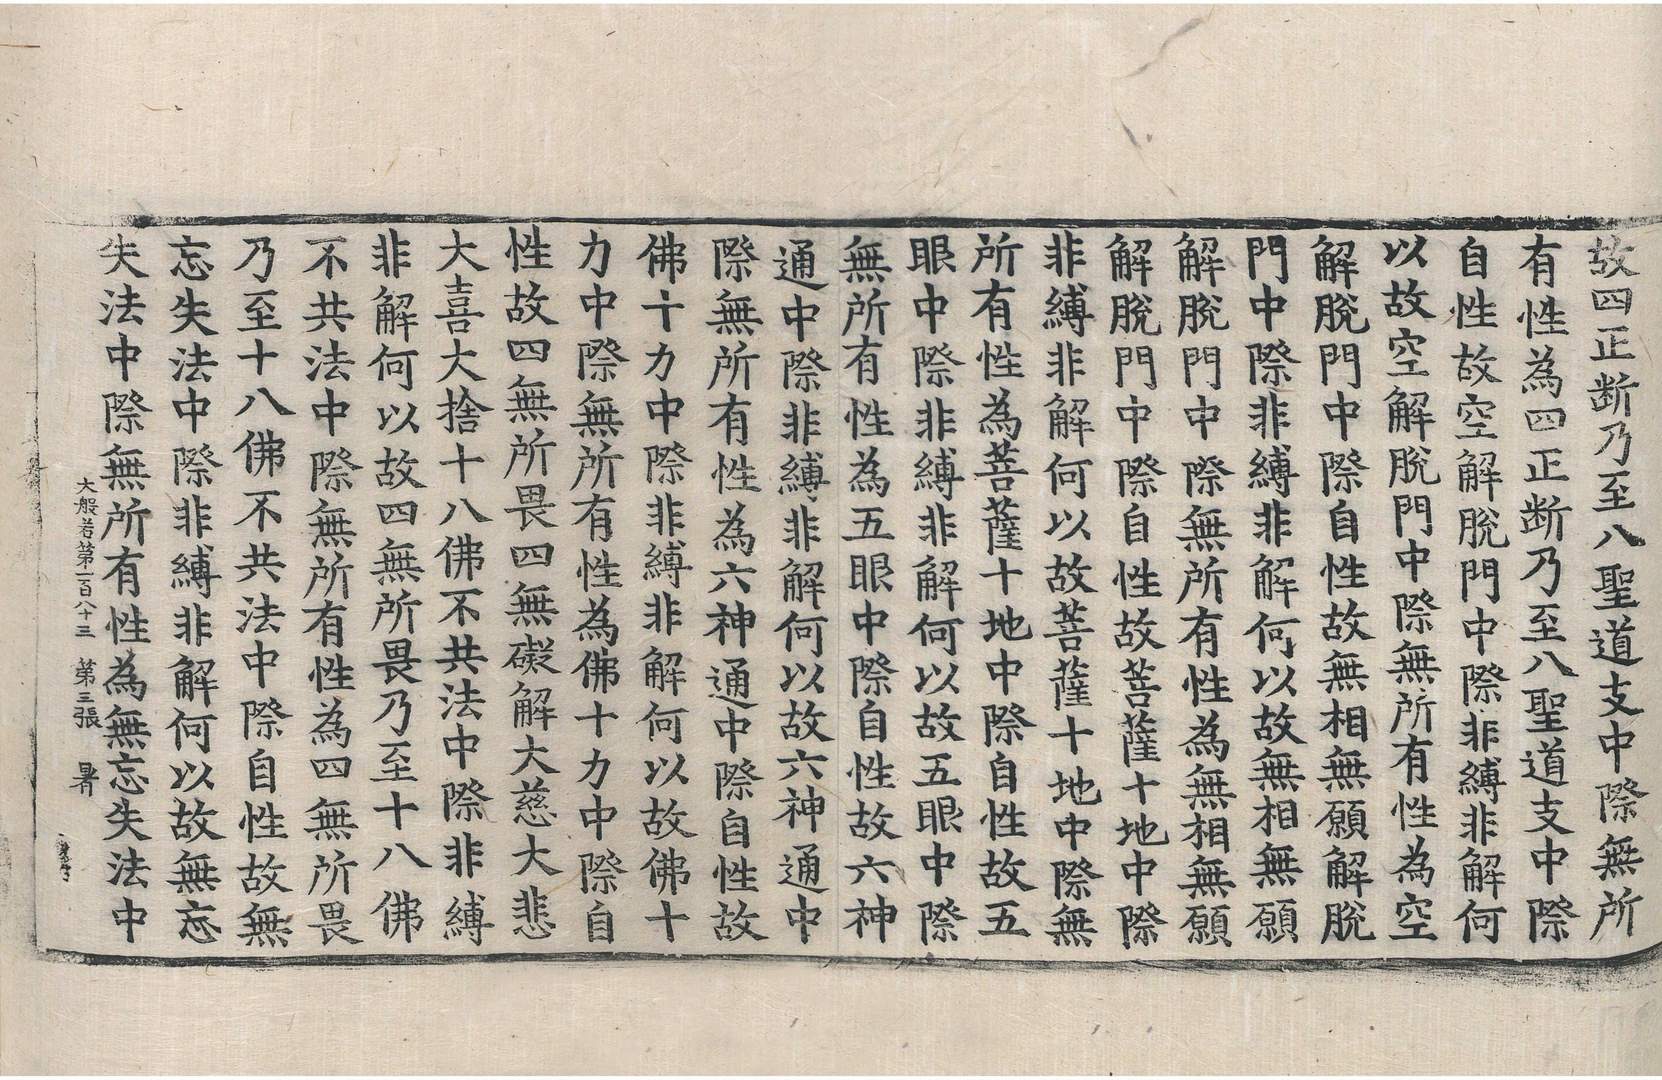 故四正断乃至八聖道支中際無所
有性為四正断乃至八聖道支中際
自性故空解脫門中際非縛非解何
以故空解脫門中際無所有性為空
解脫門中際自性故無相無願解脫
門中際非縛非解何以故無相無願
解脫門中際無所有性為無相無願
解脫門中際自性故菩薩十地中際
非縛非解何以故菩薩十地中際無
所有性為菩薩十地中際自性故五
眼中際非縛非解何以故五眼中際
無所有性為五眼中際自性故六神
通中際非縛非解何以故六神通中
際無所有性為六神通中際自性故
佛十力中際非縛非解何以故佛十
力中際無所有性為佛十力中際自
性故四無所畏四無礙解大慈大悲
大喜大捨十八佛不共法中際非縛
非解何以故四無所畏乃至十八佛
不共法中際無所有性為四無所畏
乃至十八佛不共法中際自性故無
忘失法中際非縛非解何以故無忘
失法中際無所有性為無忘失法中
大般若第一百八十三 第三張